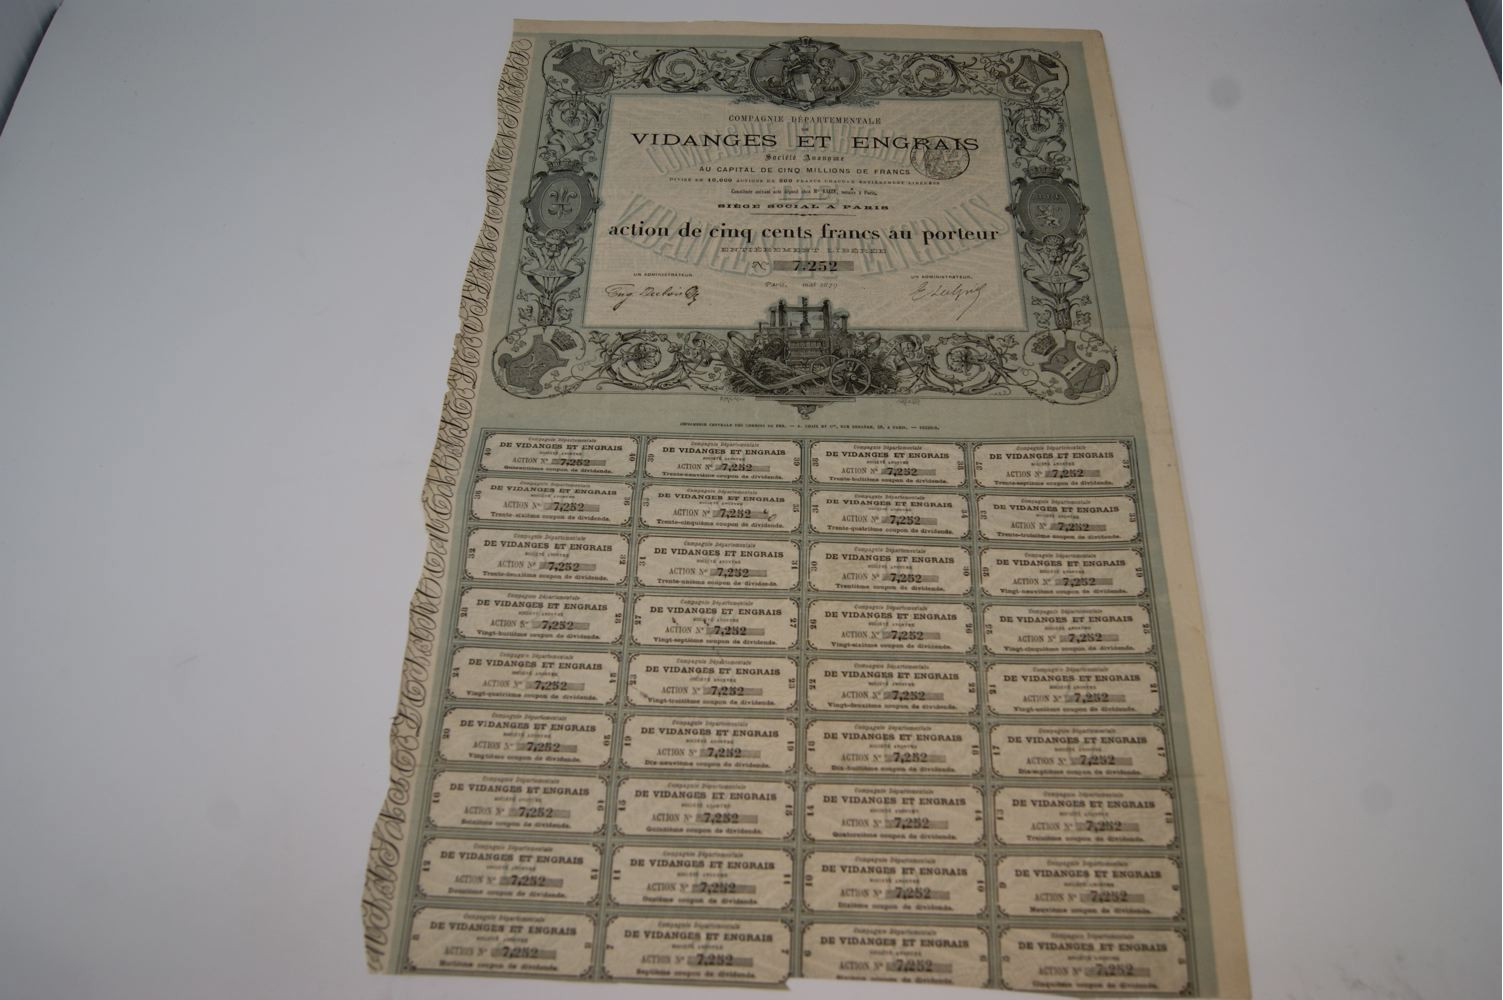 COMPAGNIE DÉPARTEMENTALE
DE
VIDANGES ET ENGRAIS
Société Anonyme
AU CAPITAL DE CINQ MILLIONS DE FRANCS
DIVISÉ EN 10,000 ACTIONS DE 500 FRANCS CHACUNE ENTIÈREMENT LIBÉRÉES
SIÈGE SOCIAL A PARIS
action de cinq cents francs au porteur
ENTIÈREMENT LIBÉRÉE
N° 7,252
UN ADMINISTRATEUR, UN ADMINISTRATEUR,
Paris, mai 1879
IMPRIMERIE CENTRALE DES CHEMINS DE FER. — A. CHAIX ET Cie, RUE BERGÈRE, 20, A PARIS.
Compagnie Départementale Compagnie Départementale Compagnie Départementale Compagnie Départementale
DE VIDANGES ET ENGRAIS DE VIDANGES ET ENGRAIS DE VIDANGES ET ENGRAIS DE VIDANGES ET ENGRAIS
SOCIÉTÉ ANONYME SOCIÉTÉ ANONYME SOCIÉTÉ ANONYME SOCIÉTÉ ANONYME
40 ACTION N° 7,252 40 39 ACTION N° 7,252 39 38 ACTION N° 7,252 38 37 ACTION N° 7,252 37
Quarantième coupon de dividende. Trente-neuvième coupon de dividende. Trente-huitième coupon de dividende. Trente-septième coupon de dividende.
Compagnie Départementale Compagnie Départementale Compagnie Départementale Compagnie Départementale
DE VIDANGES ET ENGRAIS DE VIDANGES ET ENGRAIS DE VIDANGES ET ENGRAIS DE VIDANGES ET ENGRAIS
SOCIÉTÉ ANONYME SOCIÉTÉ ANONYME SOCIÉTÉ ANONYME SOCIÉTÉ ANONYME
36 ACTION N° 7,252 36 35 ACTION N° 7,252 35 34 ACTION N° 7,252 34 33 ACTION N° 7,252 33
Trente-sixième coupon de dividende. Trente-cinquième coupon de dividende. Trente-quatrième coupon de dividende. Trente-troisième coupon de dividende.
Compagnie Départementale Compagnie Départementale Compagnie Départementale Compagnie Départementale
DE VIDANGES ET ENGRAIS DE VIDANGES ET ENGRAIS DE VIDANGES ET ENGRAIS DE VIDANGES ET ENGRAIS
SOCIÉTÉ ANONYME SOCIÉTÉ ANONYME SOCIÉTÉ ANONYME SOCIÉTÉ ANONYME
32 ACTION N° 7,252 32 31 ACTION N° 7,252 31 30 ACTION N° 7,252 30 29 ACTION N° 7,252 29
Trente-deuxième coupon de dividende. Trente-unième coupon de dividende. Trentième coupon de dividende. Vingt-neuvième coupon de dividende.
Compagnie Départementale Compagnie Départementale Compagnie Départementale Compagnie Départementale
DE VIDANGES ET ENGRAIS DE VIDANGES ET ENGRAIS DE VIDANGES ET ENGRAIS DE VIDANGES ET ENGRAIS
SOCIÉTÉ ANONYME SOCIÉTÉ ANONYME SOCIÉTÉ ANONYME SOCIÉTÉ ANONYME
28 ACTION N° 7,252 28 27 ACTION N° 7,252 27 26 ACTION N° 7,252 26 25 ACTION N° 7,252 25
Vingt-huitième coupon de dividende. Vingt-septième coupon de dividende. Vingt-sixième coupon de dividende. Vingt-cinquième coupon de dividende.
Compagnie Départementale Compagnie Départementale Compagnie Départementale Compagnie Départementale
DE VIDANGES ET ENGRAIS DE VIDANGES ET ENGRAIS DE VIDANGES ET ENGRAIS DE VIDANGES ET ENGRAIS
SOCIÉTÉ ANONYME SOCIÉTÉ ANONYME SOCIÉTÉ ANONYME SOCIÉTÉ ANONYME
24 ACTION N° 7,252 24 23 ACTION N° 7,252 23 22 ACTION N° 7,252 22 21 ACTION N° 7,252 21
Vingt-quatrième coupon de dividende. Vingt-troisième coupon de dividende. Vingt-deuxième coupon de dividende. Vingt-unième coupon de dividende.
Compagnie Départementale Compagnie Départementale Compagnie Départementale Compagnie Départementale
DE VIDANGES ET ENGRAIS DE VIDANGES ET ENGRAIS DE VIDANGES ET ENGRAIS DE VIDANGES ET ENGRAIS
SOCIÉTÉ ANONYME SOCIÉTÉ ANONYME SOCIÉTÉ ANONYME SOCIÉTÉ ANONYME
20 ACTION N° 7,252 20 19 ACTION N° 7,252 19 18 ACTION N° 7,252 18 17 ACTION N° 7,252 17
Vingtième coupon de dividende. Dix-neuvième coupon de dividende. Dix-huitième coupon de dividende. Dix-septième coupon de dividende.
Compagnie Départementale Compagnie Départementale Compagnie Départementale Compagnie Départementale
DE VIDANGES ET ENGRAIS DE VIDANGES ET ENGRAIS DE VIDANGES ET ENGRAIS DE VIDANGES ET ENGRAIS
SOCIÉTÉ ANONYME SOCIÉTÉ ANONYME SOCIÉTÉ ANONYME SOCIÉTÉ ANONYME
16 ACTION N° 7,252 16 15 ACTION N° 7,252 15 14 ACTION N° 7,252 14 13 ACTION N° 7,252 13
Seizième coupon de dividende. Quinzième coupon de dividende. Quatorzième coupon de dividende. Treizième coupon de dividende.
Compagnie Départementale Compagnie Départementale Compagnie Départementale Compagnie Départementale
DE VIDANGES ET ENGRAIS DE VIDANGES ET ENGRAIS DE VIDANGES ET ENGRAIS DE VIDANGES ET ENGRAIS
SOCIÉTÉ ANONYME SOCIÉTÉ ANONYME SOCIÉTÉ ANONYME SOCIÉTÉ ANONYME
12 ACTION N° 7,252 12 11 ACTION N° 7,252 11 10 ACTION N° 7,252 10 9 ACTION N° 7,252 9
Douzième coupon de dividende. Onzième coupon de dividende. Dixième coupon de dividende. Neuvième coupon de dividende.
Compagnie Départementale Compagnie Départementale Compagnie Départementale Compagnie Départementale
DE VIDANGES ET ENGRAIS DE VIDANGES ET ENGRAIS DE VIDANGES ET ENGRAIS DE VIDANGES ET ENGRAIS
SOCIÉTÉ ANONYME SOCIÉTÉ ANONYME SOCIÉTÉ ANONYME SOCIÉTÉ ANONYME
8 ACTION N° 7,252 8 7 ACTION N° 7,252 7 6 ACTION N° 7,252 6 5 ACTION N° 7,252 5
Huitième coupon de dividende. Septième coupon de dividende. Sixième coupon de dividende. Cinquième coupon de dividende.